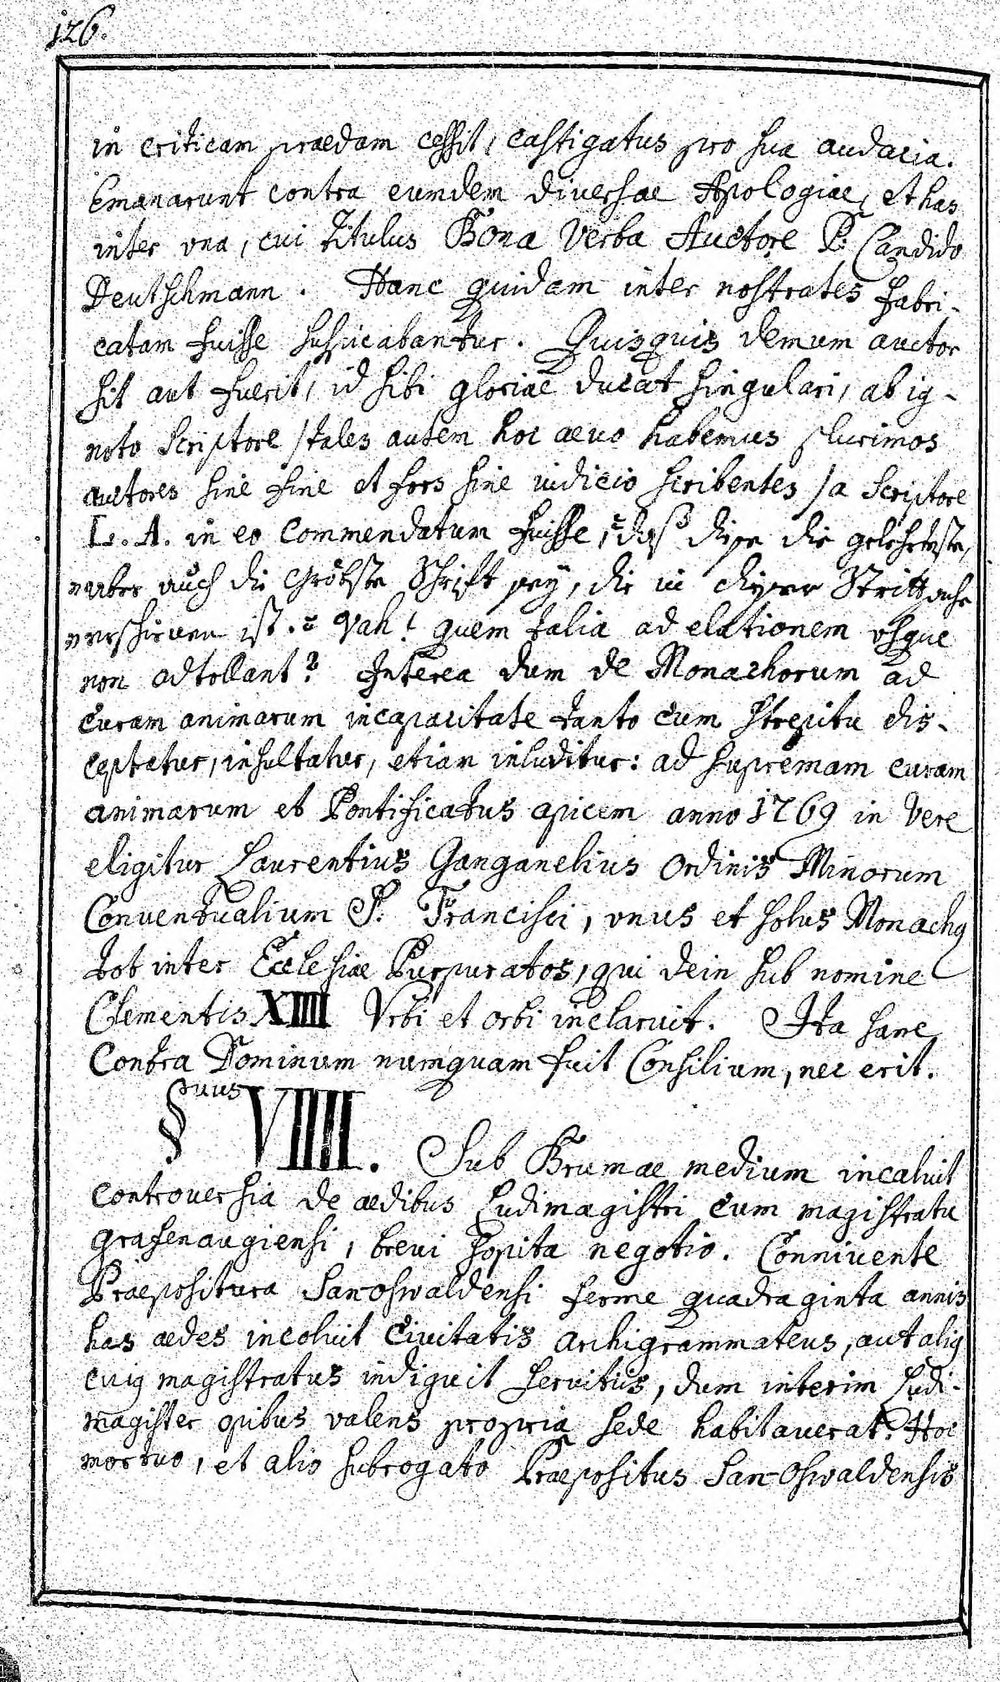 126.
in criticam praedam cessit, castigatus pro sua audacia.
Emanarunt contra eumdem diversae Apologiae, et has
inter vna, cui titulus Bona Verba Auctore P. Candido
Deutschmann. Hanc quidam inter nostrates fabri-
catam fuisse suspicabantur. Quisquis demum auctor
sit aut fuerit, id sibi gloriae ducat singulari, ab ig-
noto Scriptore /tales autem hoc aevo habemus plurimos
auctores sine fine et fors sine iudicio scribentes/ a Scriptore
L. A. in eo commendatum fuisse, "daß diese die gelehrteste,
"aber auch die Gröbste Schrift sey, die in dieser Strittsache
"erschienen ist." Vah! quem talia ad elationem vsque
non adtollant? Interea dum de Monachorum ad
curam animarum incapacitate tanto cum strepitu dis-
ceptatur, insultatur, etiam inluditur: ad supremam curam
animarum et Pontificatus apicem anno 1769 in Vere
eligitur Laurentius Ganganelius Ordinis Minorum
Conventualium S. Francisci, vnus et solus Monachq
tot inter Ecclesiae Purpuratos, qui dein sub nomine
Clementis XIIII Vrbi et orbi inclaruit. Ita sane
Contra Dominum numquam fuit Consilium, nec erit.
§vus VIIII. Sub Brumae medium incaluit
controversia de aedibus Ludimagistri cum magistratu
grafenaugiensi, brevi sopita negotio. Connivente
Praepositura San-oswaldensi ferme quadraginta annis
has aedes incoluit Civitatis archigrammateus, aut aliq
cuiq magistratus indiguit servitiis, dum interim Ludi-
magister opibus valens propria sede habitaverat. Hoc
mortuo, et alio subrogato Praepositus San-Oswaldensis